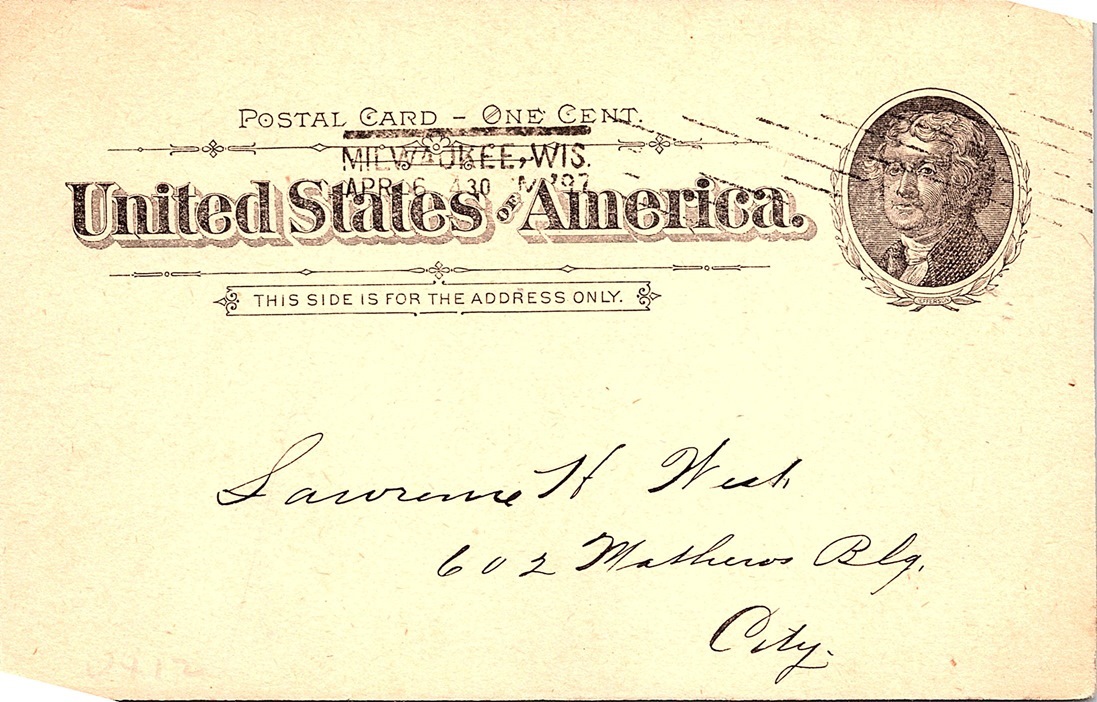 POSTAL CARD – ONE CENT.
MILWAUKEE, WIS.
APR 6 430 M '97
United States of America.
JEFFERSON
THIS SIDE IS FOR THE ADDRESS ONLY.
Lawrence H West
602 Mathews Blg.
City.